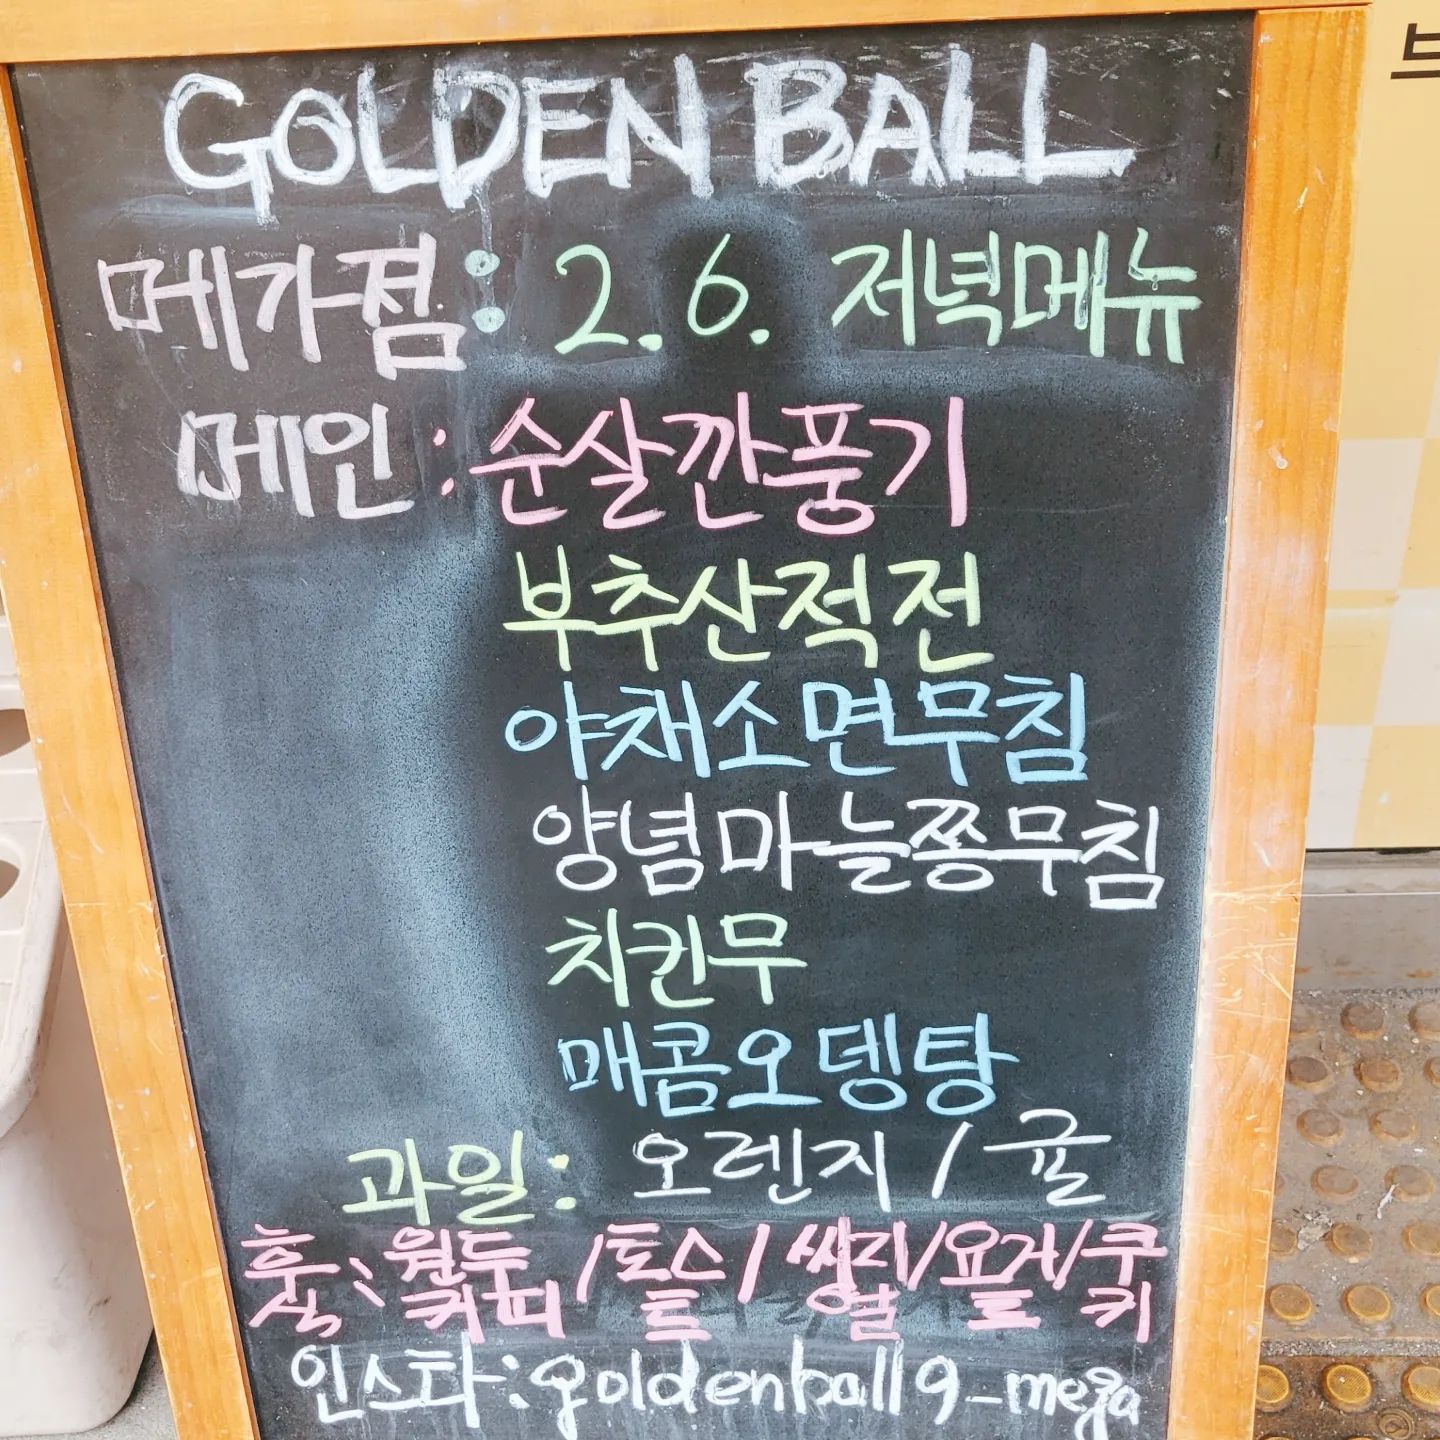 GOLDEN BALL
메가점: 2.6. 저녁메뉴
메인: 순살깐풍기
부추산적전
야채소면무침
양념마늘쫑무침
치킨무
매콤오뎅탕
과일: 오렌지 / 귤
후식: 원두커피 / 토스트 / 쌍화젤 / 요거트 / 쿠키
인스타: goldenball9_mega